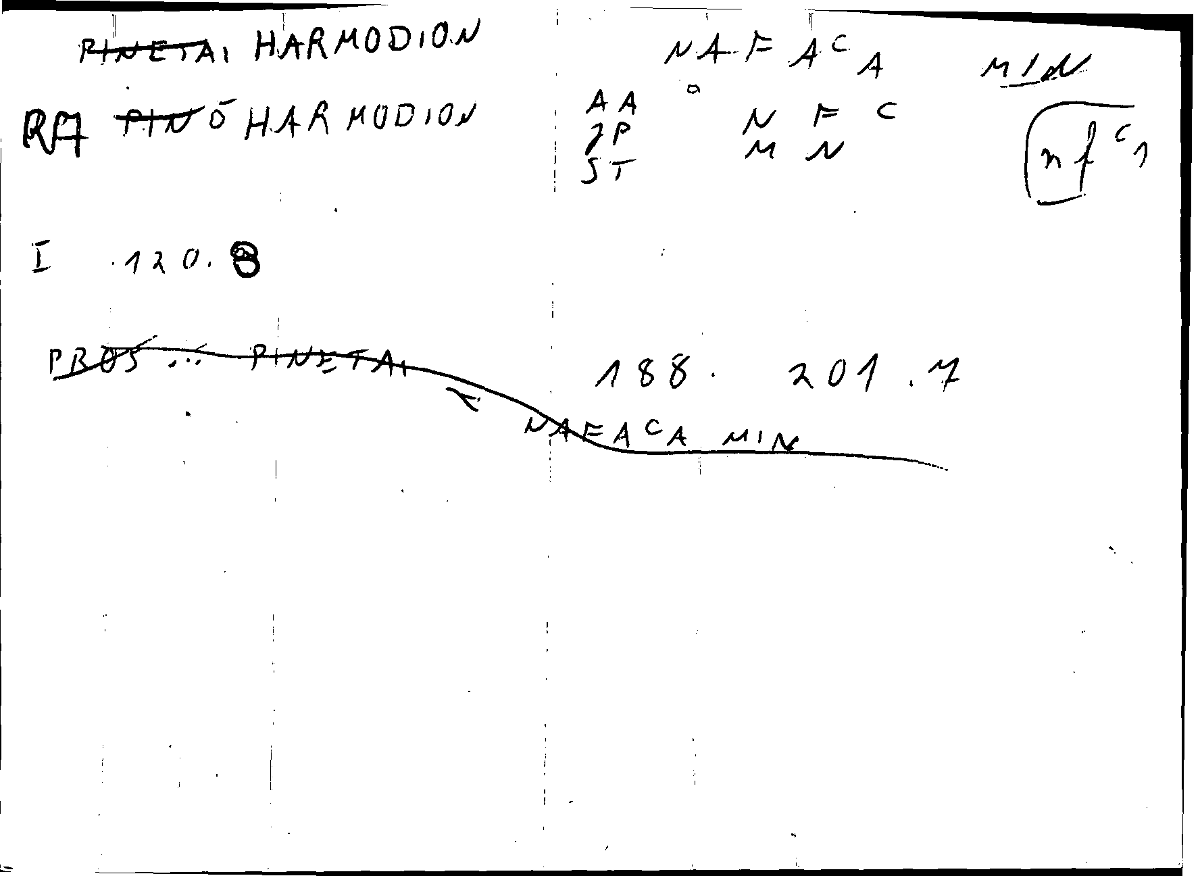 PINETAI HARMODION NAFACA MIN
RA PINŌ HARMODION AA N F C
JP M N
ST
nf c1
I .120.8
PROS ... PINETAI 188. 201.7
NAFACA MIN